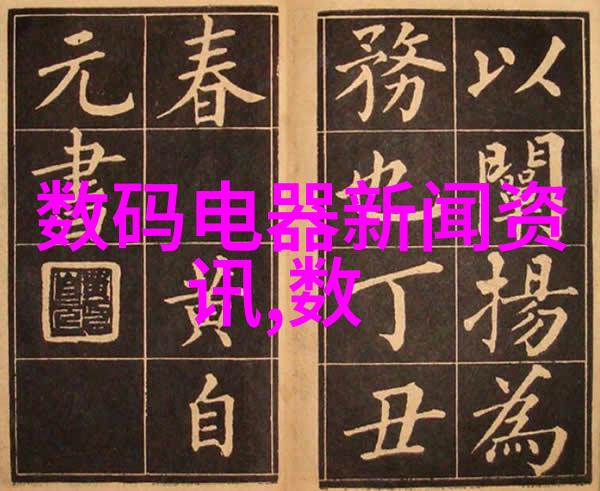 以闡揚為
務也丁丑
春黄自
元書
数码电器新闻资
讯,数